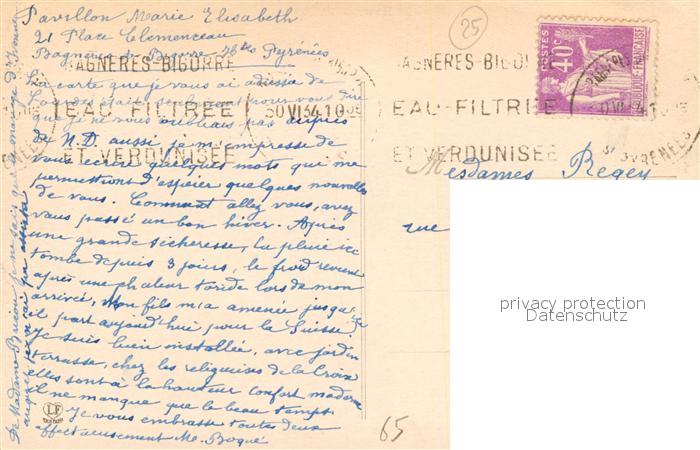 Pavillon Marie Elisabeth
21 Place Clemenceau
Bagnères de Bigorre Htes Pyrénées
La carte que je vous ai adressé de
Lourdes était pour vous dire
que je ne vous oubliais pas auprès
de N.D. aussi je m'empresse de
vous écrire quelques mots qui me
permettions d'espérer quelques nouvelles
de vous. Comment allez vous, avez
vous passé un bon hiver. Après
une grande sécheresse, la pluie ici
tombe depuis 3 jours, le froid revient
après une chaleur toride lors de mon
arrivée, Mon fils m'a amenée jusqu'ici
il part aujourd'hui pour la Suisse,
Je suis bien installée, avec jardin
terrasse, chez les religieuses de la Croix
elles sont à la hauteur confort moderne
il ne manque que le beau temps.
Je vous embrasse toutes deux
affectueusement Me. Boqué
De Madame je ne sais que le mariage d'Yvonne
auquel j'ai assisté
LF
25
BAGNERES-BIGORRE
EAU-FILTREE
ET VERDUNISEE
30 VI 34 10
BAGNERES-BIGORRE
EAU-FILTREE
ET VERDUNISEE
POSTES
40c
REPUBLIQUE FRANÇAISE
Hes PYRENEES
Mesdames Regey
rue
privacy protection
Datenschutz
65